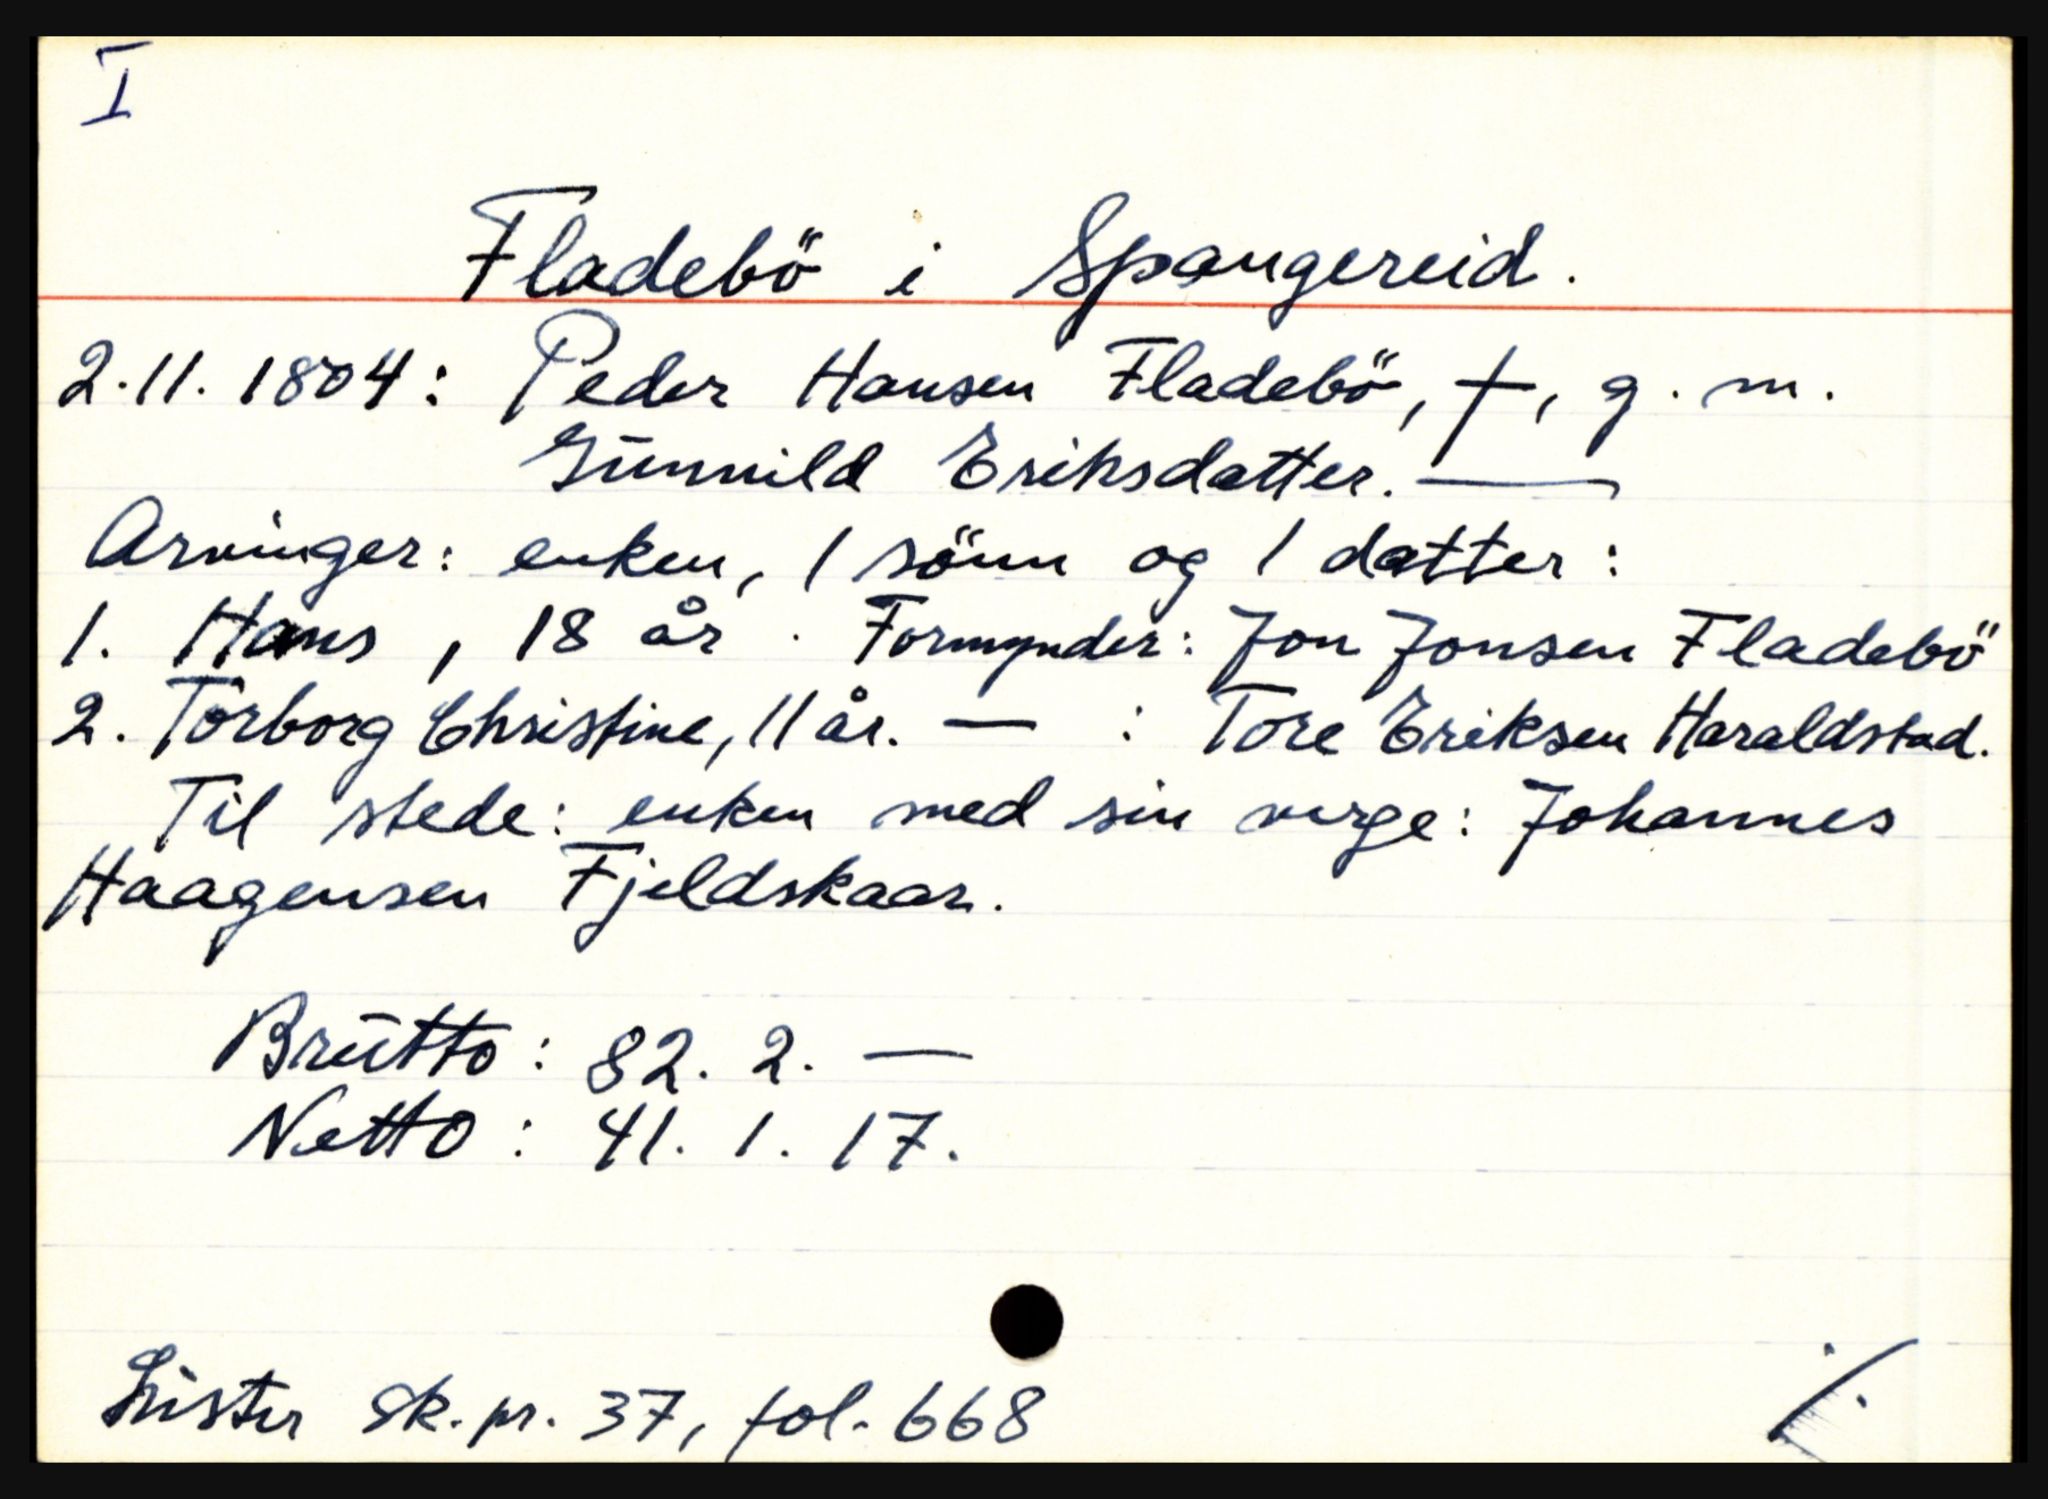 I
Fladebö i Spangereid.
2.11. 1804: Peder Hansen Fladebö, †, g. m.
Gunnild Eriksdatter. —
Arvinger: enken, 1 sönn og 1 datter:
1. Hans, 18 år. Formynder: Jon Jonsen Fladebö
2. Torborg Christine, 11 år. — : Tore Eriksen Haraldstad.
Til stede: enken med sin verge: Johannes
Haagensen Fjeldskaar.
Brutto: 82. 2. —
Netto: 41. 1. 17.
Lister sk. pr. 37, fol. 668